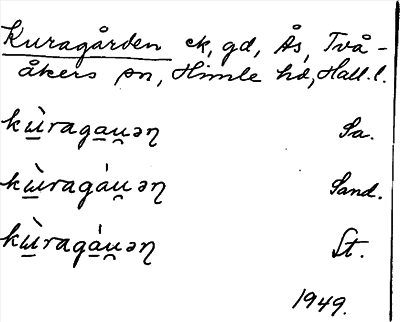 Kuragården ck, gd, Ås, Två-
åkers sn, Himle hd, Hall. l.
kù̱raga̱u̯əɳ Sa.
kù̱ragá̱u̯əɳ Sand.
kù̱ragá̱u̯əɳ St.
1949.